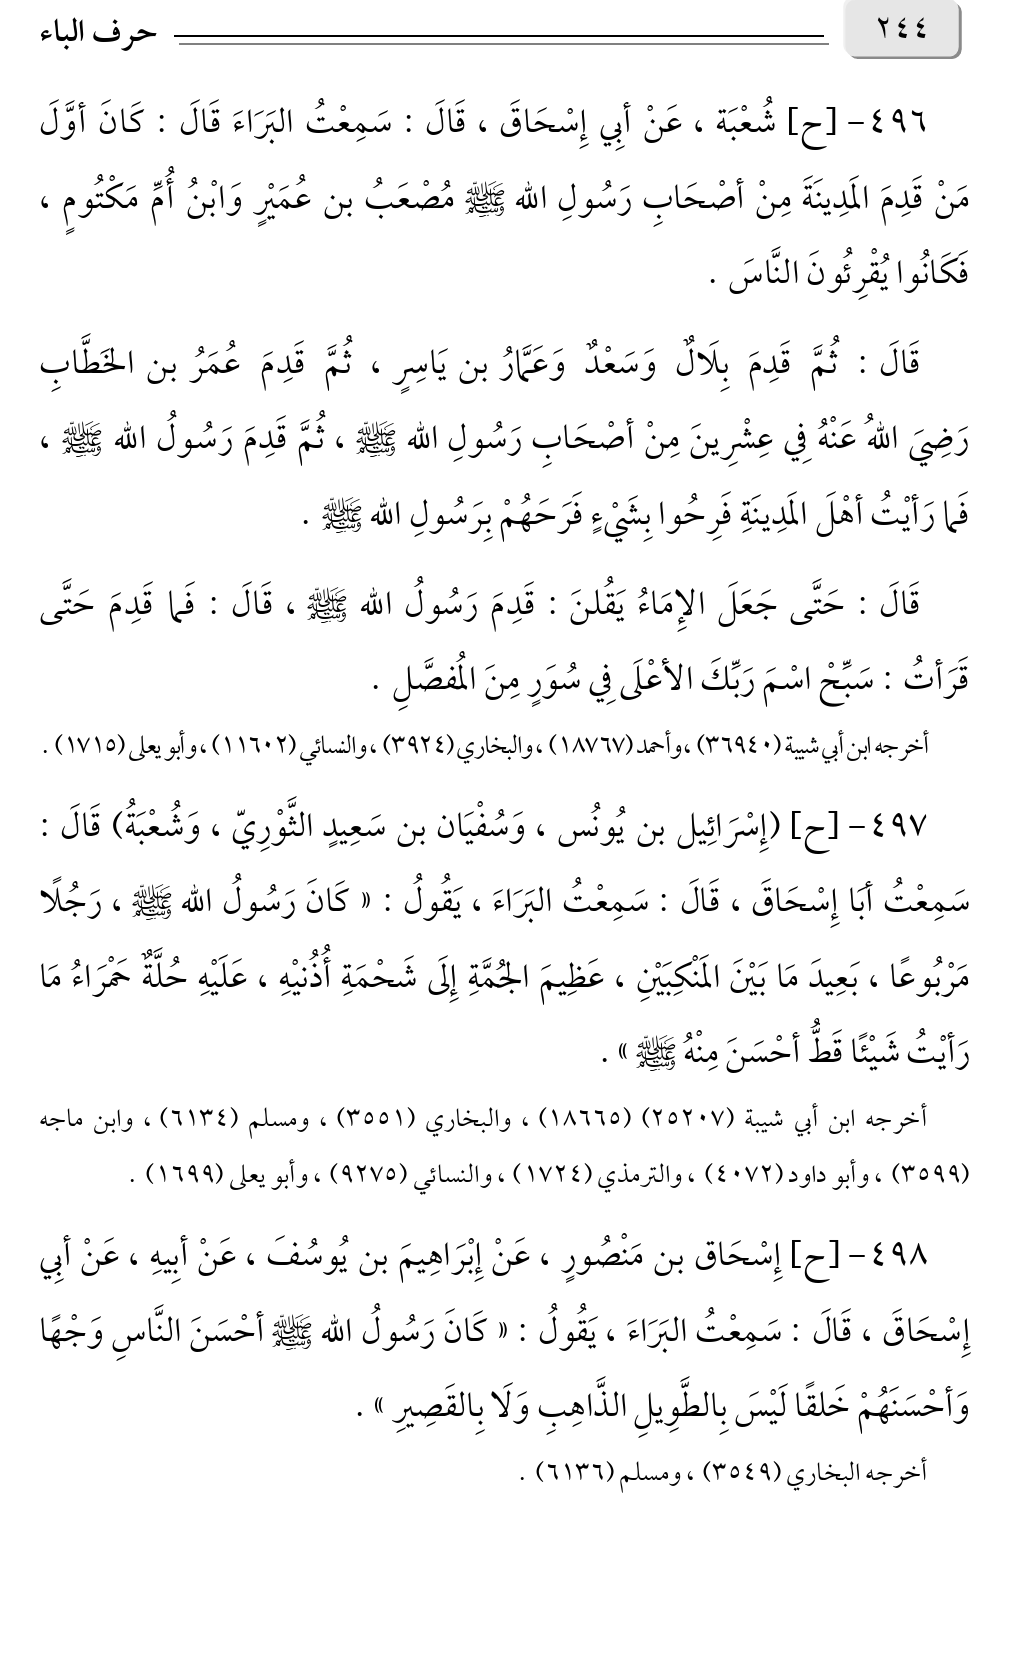 ٢٤٤ حرف الباء
٤٩٦- [ح] شُعْبَة ، عَنْ أَبِي إِسْحَاقَ ، قَالَ : سَمِعْتُ البَرَاءَ قَالَ : كَانَ أوَّلَ
مَنْ قَدِمَ المَدِينَةَ مِنْ أصْحَابِ رَسُولِ الله ﷺ مُصْعَبُ بن عُمَيْرٍ وَابْنُ أُمِّ مَكْتُومٍ ،
فَكَانُوا يُقْرِئُونَ النَّاسَ .
قَالَ : ثُمَّ قَدِمَ بِلَالٌ وَسَعْدٌ وَعَمَّارُ بن يَاسِرٍ ، ثُمَّ قَدِمَ عُمَرُ بن الخَطَّابِ
رَضِيَ اللهُ عَنْهُ فِي عِشْرِينَ مِنْ أصْحَابِ رَسُولِ الله ﷺ ، ثُمَّ قَدِمَ رَسُولُ الله ﷺ ،
فَما رَأيْتُ أهْلَ المَدِينَةِ فَرِحُوا بِشَيْءٍ فَرَحَهُمْ بِرَسُولِ الله ﷺ .
قَالَ : حَتَّى جَعَلَ الإِمَاءُ يَقُلنَ : قَدِمَ رَسُولُ الله ﷺ ، قَالَ : فَما قَدِمَ حَتَّى
قَرَأتُ : سَبِّحْ اسْمَ رَبِّكَ الأعْلَى فِي سُوَرٍ مِنَ المُفصَّلِ .
أخرجه ابن أبي شيبة (٣٦٩٤٠) ، وأحمد (١٨٧٦٧) ، والبخاري (٣٩٢٤) ، والنسائي (١١٦٠٢) ، وأبو يعلى (١٧١٥) .
٤٩٧- [ح] (إِسْرَائِيل بن يُونُس ، وَسُفْيَان بن سَعِيدٍ الثَّوْرِيّ ، وَشُعْبَةُ) قَالَ :
سَمِعْتُ أَبَا إِسْحَاقَ ، قَالَ : سَمِعْتُ البَرَاءَ ، يَقُولُ : « كَانَ رَسُولُ الله ﷺ ، رَجُلًا
مَرْبُوعًا ، بَعِيدَ مَا بَيْنَ المَنْكِبَيْنِ ، عَظِيمَ الجُمَّةِ إِلَى شَحْمَةِ أُذُنيْهِ ، عَلَيْهِ حُلَّةٌ حَمْرَاءُ مَا
رَأيْتُ شَيْئًا قَطُّ أحْسَنَ مِنْهُ ﷺ » .
أخرجه ابن أبي شيبة (٢٥٢٠٧) (١٨٦٦٥) ، والبخاري (٣٥٥١) ، ومسلم (٦١٣٤) ، وابن ماجه
(٣٥٩٩) ، وأبو داود (٤٠٧٢) ، والترمذي (١٧٢٤) ، والنسائي (٩٢٧٥) ، وأبو يعلى (١٦٩٩) .
٤٩٨- [ح] إِسْحَاق بن مَنْصُورٍ ، عَنْ إِبْرَاهِيمَ بن يُوسُفَ ، عَنْ أَبِيهِ ، عَنْ أَبِي
إِسْحَاقَ ، قَالَ : سَمِعْتُ البَرَاءَ ، يَقُولُ : « كَانَ رَسُولُ الله ﷺ أحْسَنَ النَّاسِ وَجْهًا
وَأحْسَنَهُمْ خَلقًا لَيْسَ بِالطَّوِيلِ الذَّاهِبِ وَلَا بِالقَصِيرِ » .
أخرجه البخاري (٣٥٤٩) ، ومسلم (٦١٣٦) .